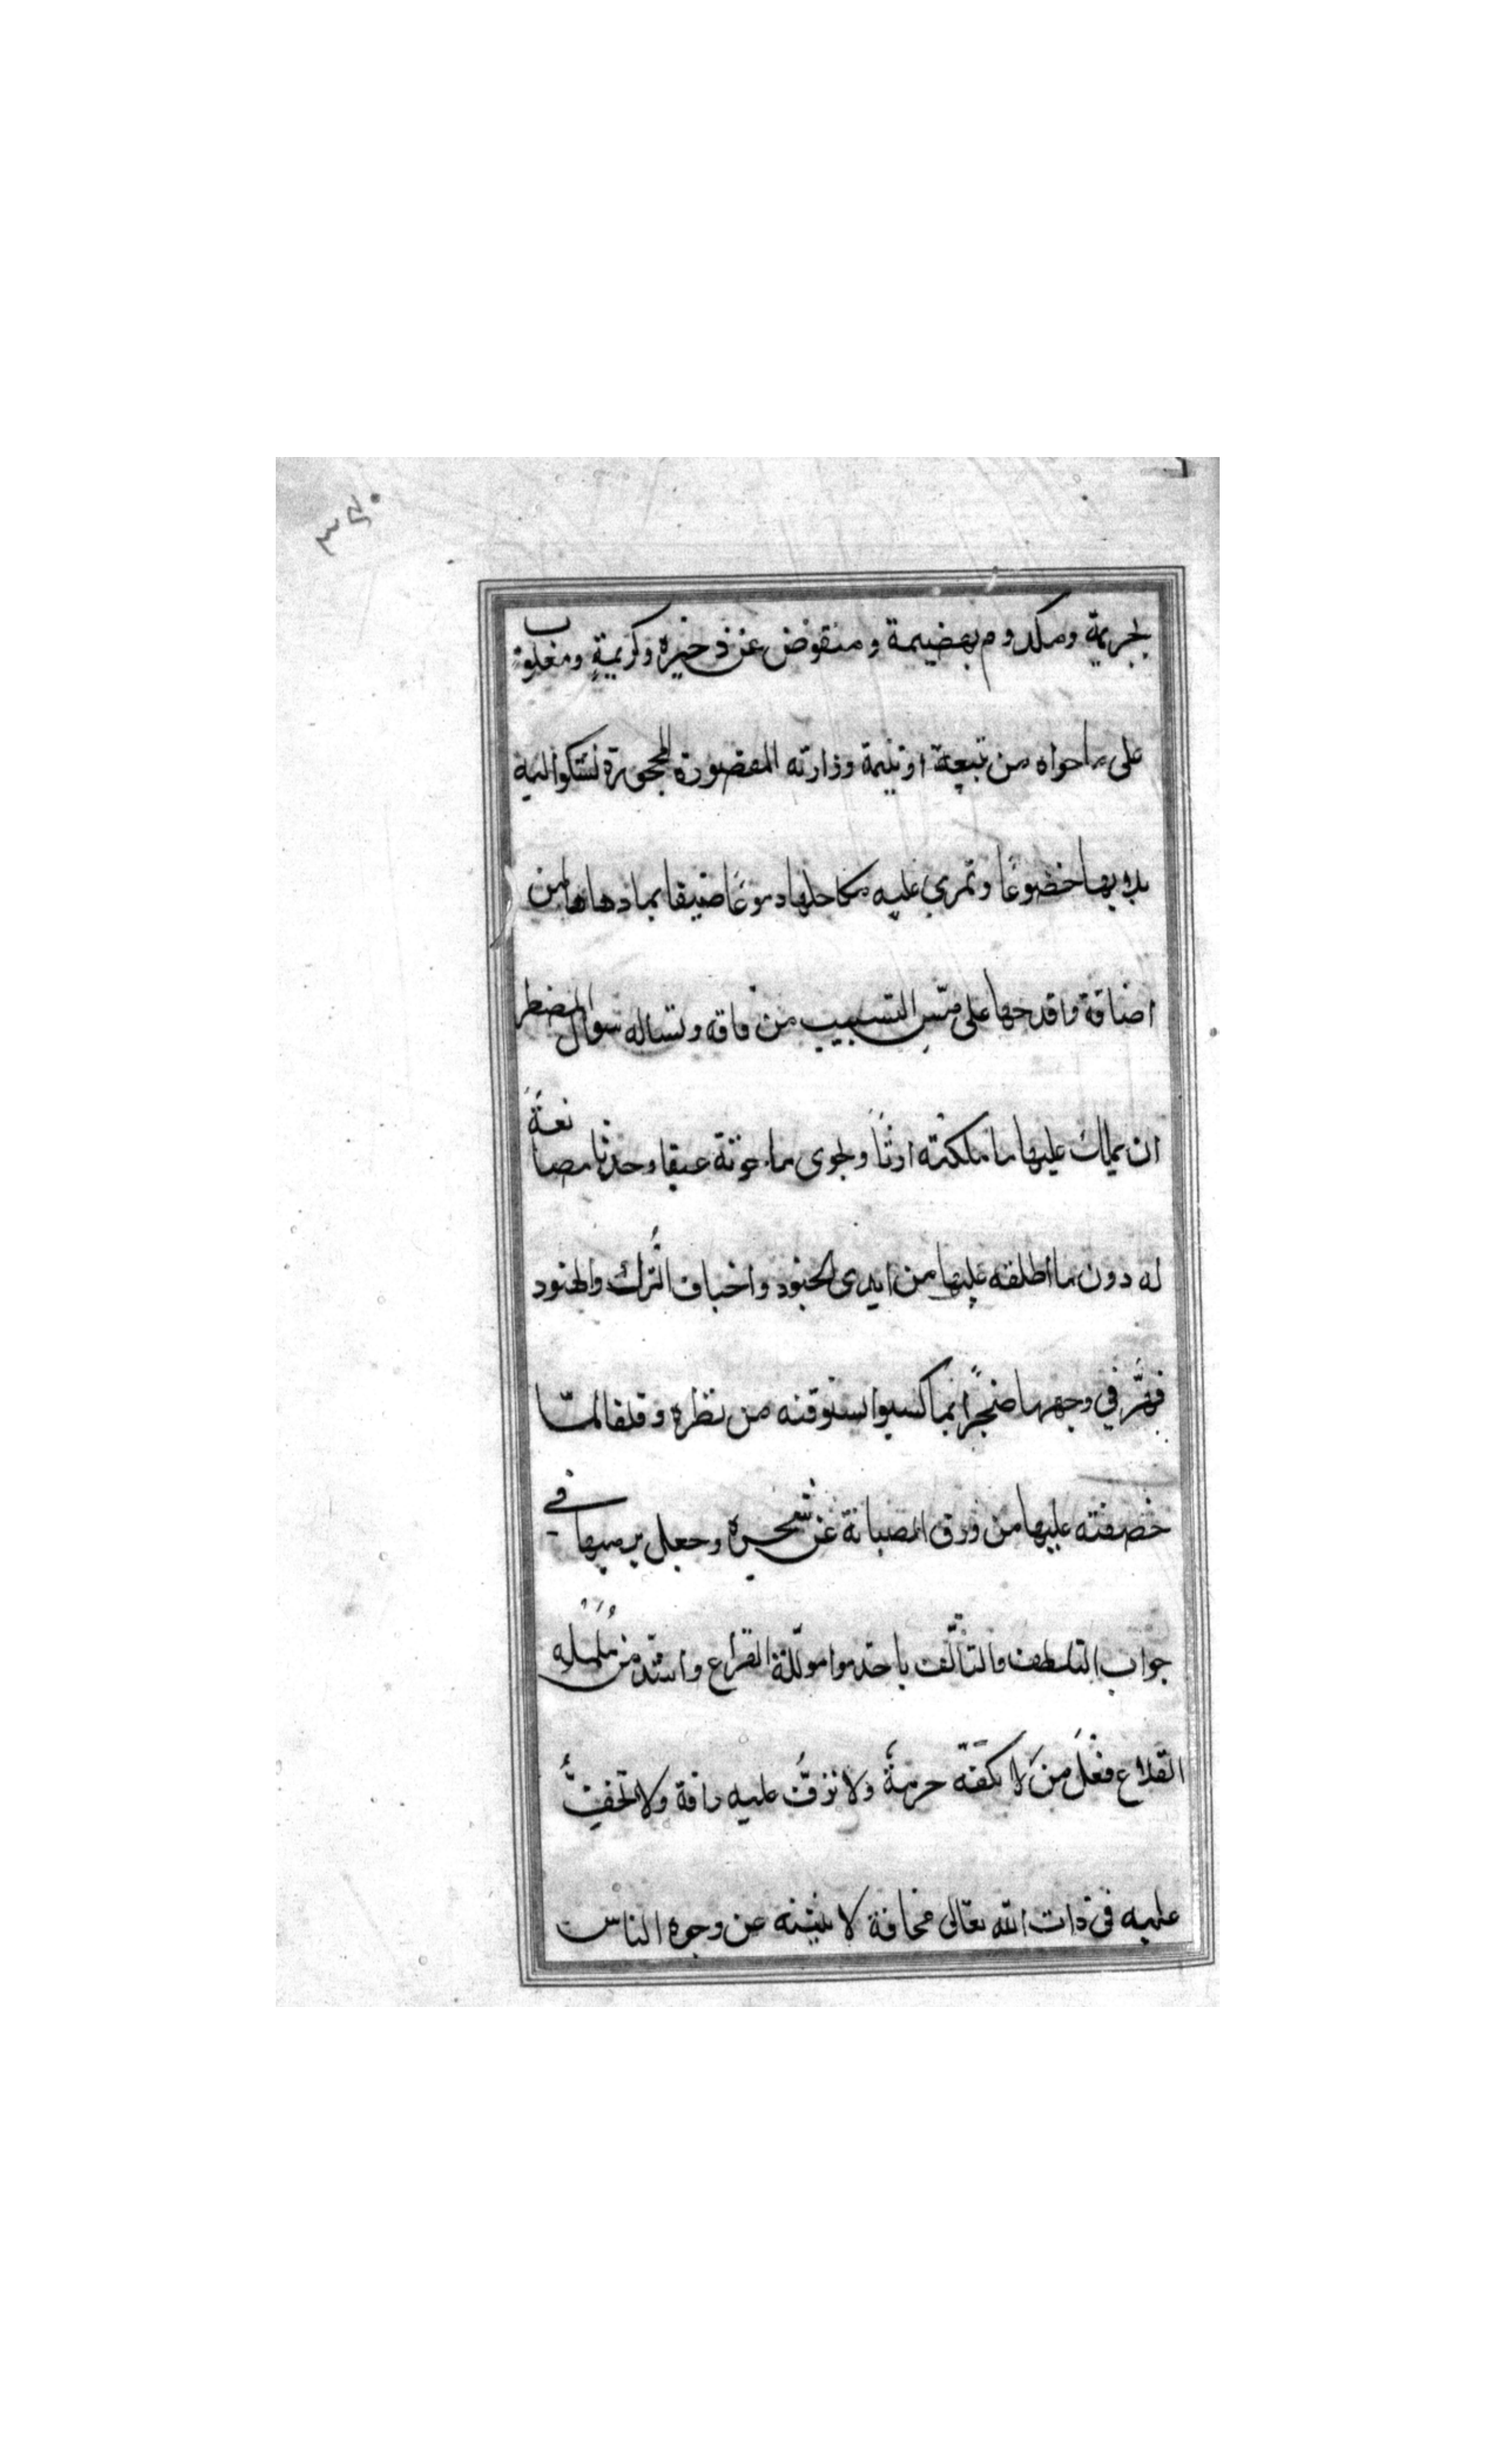 ٣٤٠
بجريمة ومكدوم بهضيمة ومنقوض عن ذخيرة وكريمةٍ ومغلوب
على ما حواه من تبيعة اوتليمة وزارته المقصورة المحجورة تشكوا اليه
بلا بها خضوعًا وتمري عليه مكاحلها دموعًا ضيقا بما دهاها من
اضاقة واقدحها على مسّ التسبيب من فاقه وتساله سوال المضطر
ان يملك عليها ما ملكته ارثًا ويحوى ما حوته عتيقا وحدثا مصانعةً
له دون ما اطلقه عليها من ايدى الجنود واخياف التُّرك والهنود
فهَّر في وجهها ضجرًا بما كسبوا ستوقنه من نظره وقلقا لمّا
خصفته عليها من ورق الصيانة عن شجره وجعل يرميها في
جواب التلطف والتألّف باحد موامولّلة القراع واشدّ من مُلملمه
القلاع فعلَ مَن لا تكفّه حرمةٌ ولا تزفُّ عليه رافة ولا تخفُّ
عليه في ذات الله تعالى مخافة لا يثنيه عن وجوه الناس